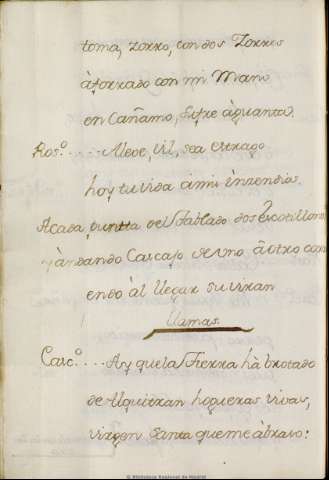 toma, zorro, con dos Zorras
àforrado con mi Mano
en Cañamo, sufre àguanta.
Ros.º .... Aleve, vil, sea estrago
hoy tu vida à mi ìnzendio
Acada punta del tablado dos escotillones
y àndando Cascajo de uno à otro corri
endo àl llegar suviran
llamas.
Casc.º .... Ay que la Tierra hà brotado
de Alquitran hogueras vivas,
virgen Santa que me àbraso:
© Biblioteca Nacional de España